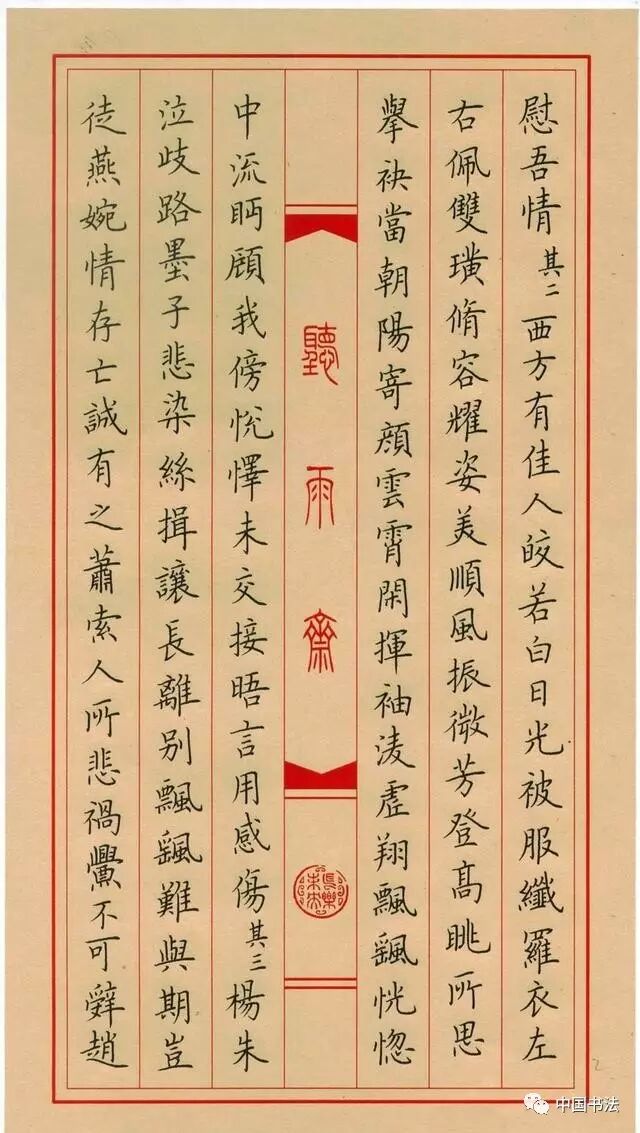 慰吾情其二西方有佳人皎若白日光被服纖羅衣左
右佩雙璜脩容耀姿美順風振微芳登髙眺所思
擧袂當朝陽寄顔雲霄閑揮袖淩虛翔飄颻恍惚
聽雨齋
長樂未央
中流眄顧我傍悅懌未交接晤言用感傷其三楊朱
泣歧路墨子悲染絲揖讓長離别飄颻難與期豈
徒燕婉情存亡誠有之蕭索人所悲禍釁不可辭趙
中国书法